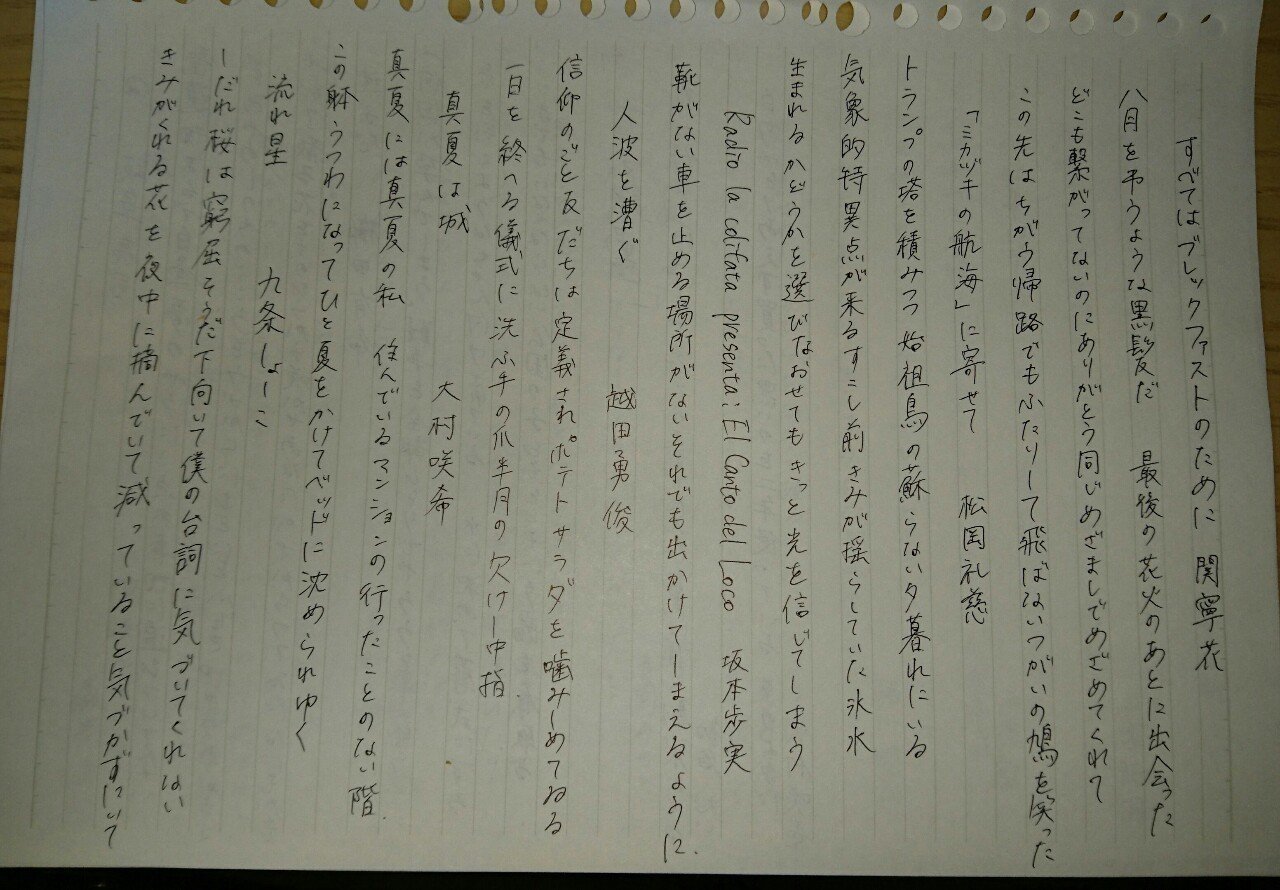 すべてはブレックファストのために 関寧花
八月を弔うような黒髪だ 最後の花火のあとに出会った
どこも繋がってないのにありがとう同じめざましでめざめてくれて
この先はちがう帰路でもふたりして飛ばないつがいの鳩を笑った
「ミカヅキの航海」に寄せて 松岡礼慈
トランプの塔を積みつつ始祖鳥の蘇らない夕暮れにいる
気象的特異点が来るすこし前きみが揺らしていた氷水
生まれるかどうかを選びなおせてもきっと光を信じてしまう
Radio la coltifata presenta: El Canto del Loco 坂本歩実
靴がない車を止める場所がないそれでも出かけてしまえるように.
人波を漕ぐ 越田勇俊
信仰のごと友だちは定義されポテトサラダを噛みしめてゐる
一日を終へる儀式に洗ふ手の爪半月の欠けし中指.
真夏は城 大村咲希
真夏には真夏の私 住んでいるマンションの行ったことのない階.
この躰うつわになってひと夏をかけてベッドに沈められゆく
流れ星 九条しょーこ
しだれ桜は窮屈そうだ下向いて僕の台詞に気づいてくれない
きみがくれる花を夜中に摘んでいて減っていること気づかずにいて